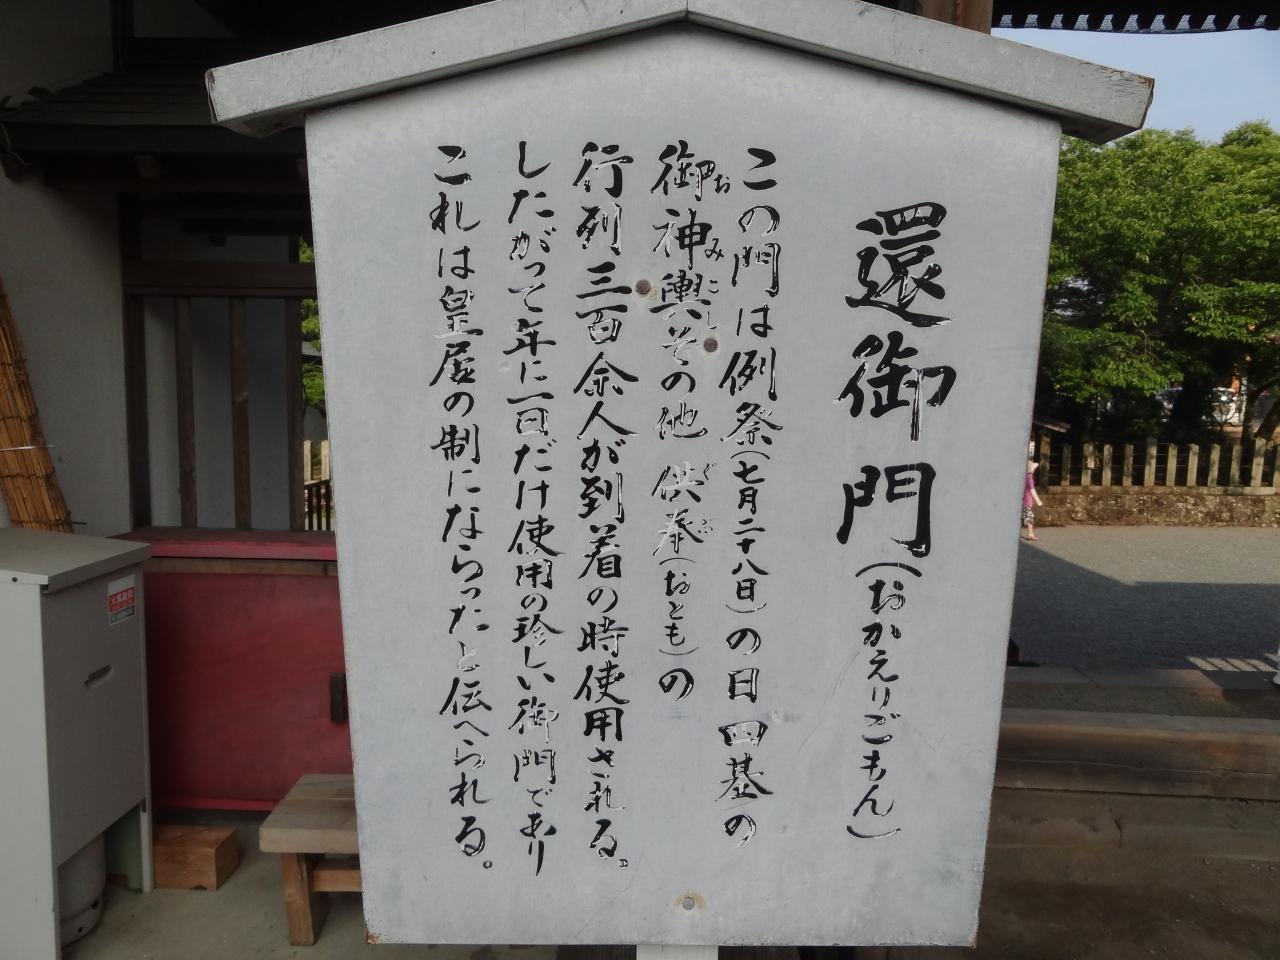 還御門(おかえりごもん)
この門は例祭(七月二十八日)の日四基の
御神輿その他供奉(おとも)の
おみこし
ぐぶ
行列三百余人が到着の時使用される。
したがって年に一日だけ使用の珍しい御門であり
これは皇居の制にならったと伝へられる。